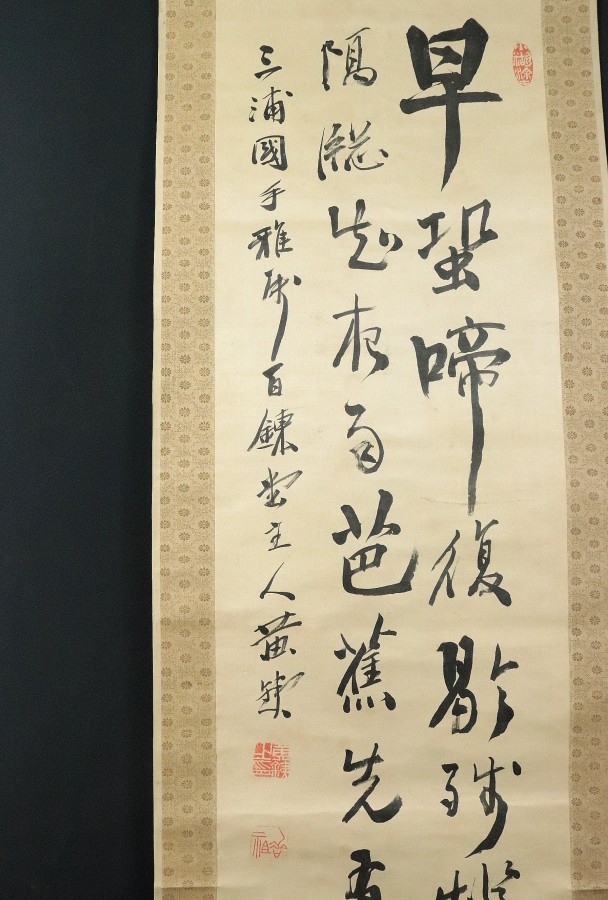 早蛩啼復歇殘燈
隔窓知夜雨芭蕉先有
三浦國手雅属百鍊堂主人黄鐵